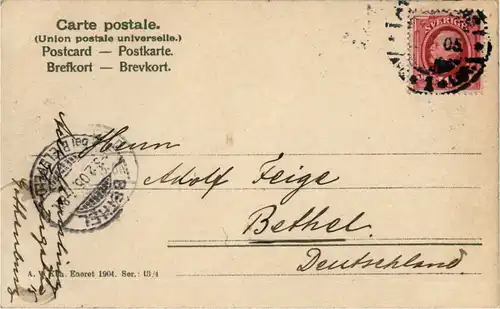 Carte postale.
(Union postale universelle.)
Postcard — Postkarte.
Brefkort — Brevkort.
SVERIGE
05
Herrn
Adolf Feige
Bethel.
Deutschland.
BETHEL
bei BIELEFELD
Gothenburg
Eneret 1904. Ser.: 43/4